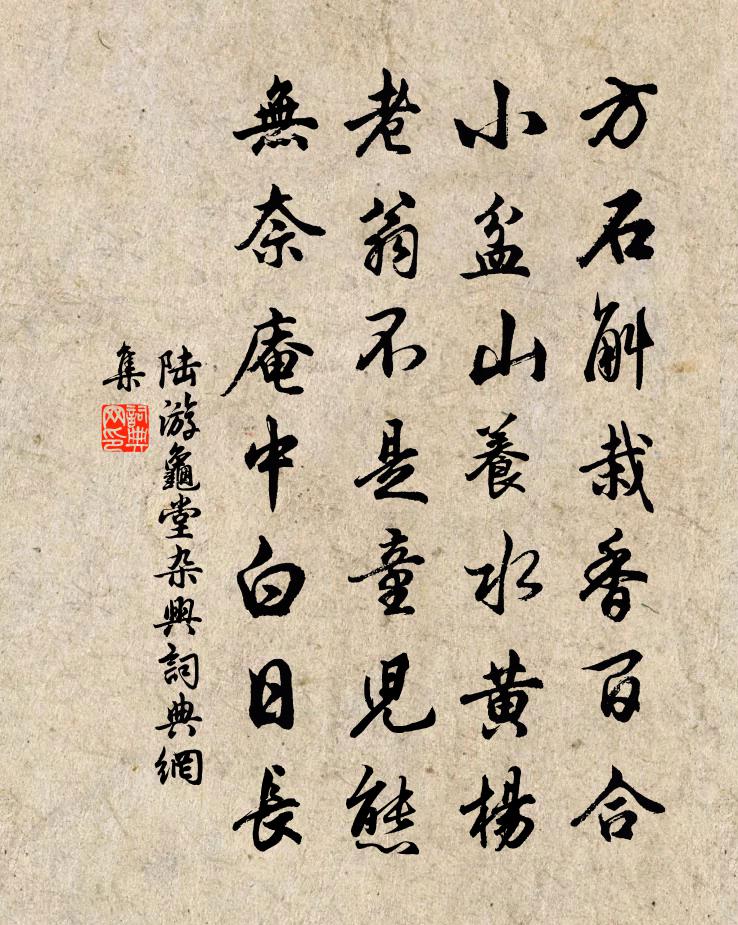 方石斛栽香百合
小盆山養水黄楊
老翁不是童兒態
無奈庵中白日長
陆游龜堂杂興詞典網
集
詞典
网印